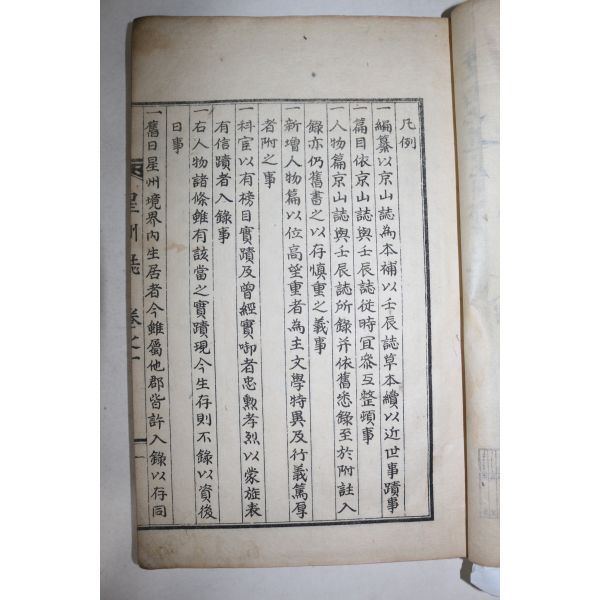 凡例
一編纂以京山誌為本補以壬辰誌草本續以近世事蹟事
一篇目依京山誌與壬辰誌從時宜叅互整頓事
一人物篇京山誌與壬辰誌所錄并依舊悉錄至於附註入
錄亦仍舊書之以存慎重之義事
一新增人物篇以位高望重者為主文學特異及行義篤厚
者附之事
一科宦以有榜目實蹟及曾經實啣者忠勲孝烈以蒙旌表
有信蹟者入錄事
一右人物諸條雖有該當之實蹟現今生存則不錄以資後
日事
一舊日星州境界內生居者今雖屬他郡皆許入錄以存同
星州誌 卷之一
一